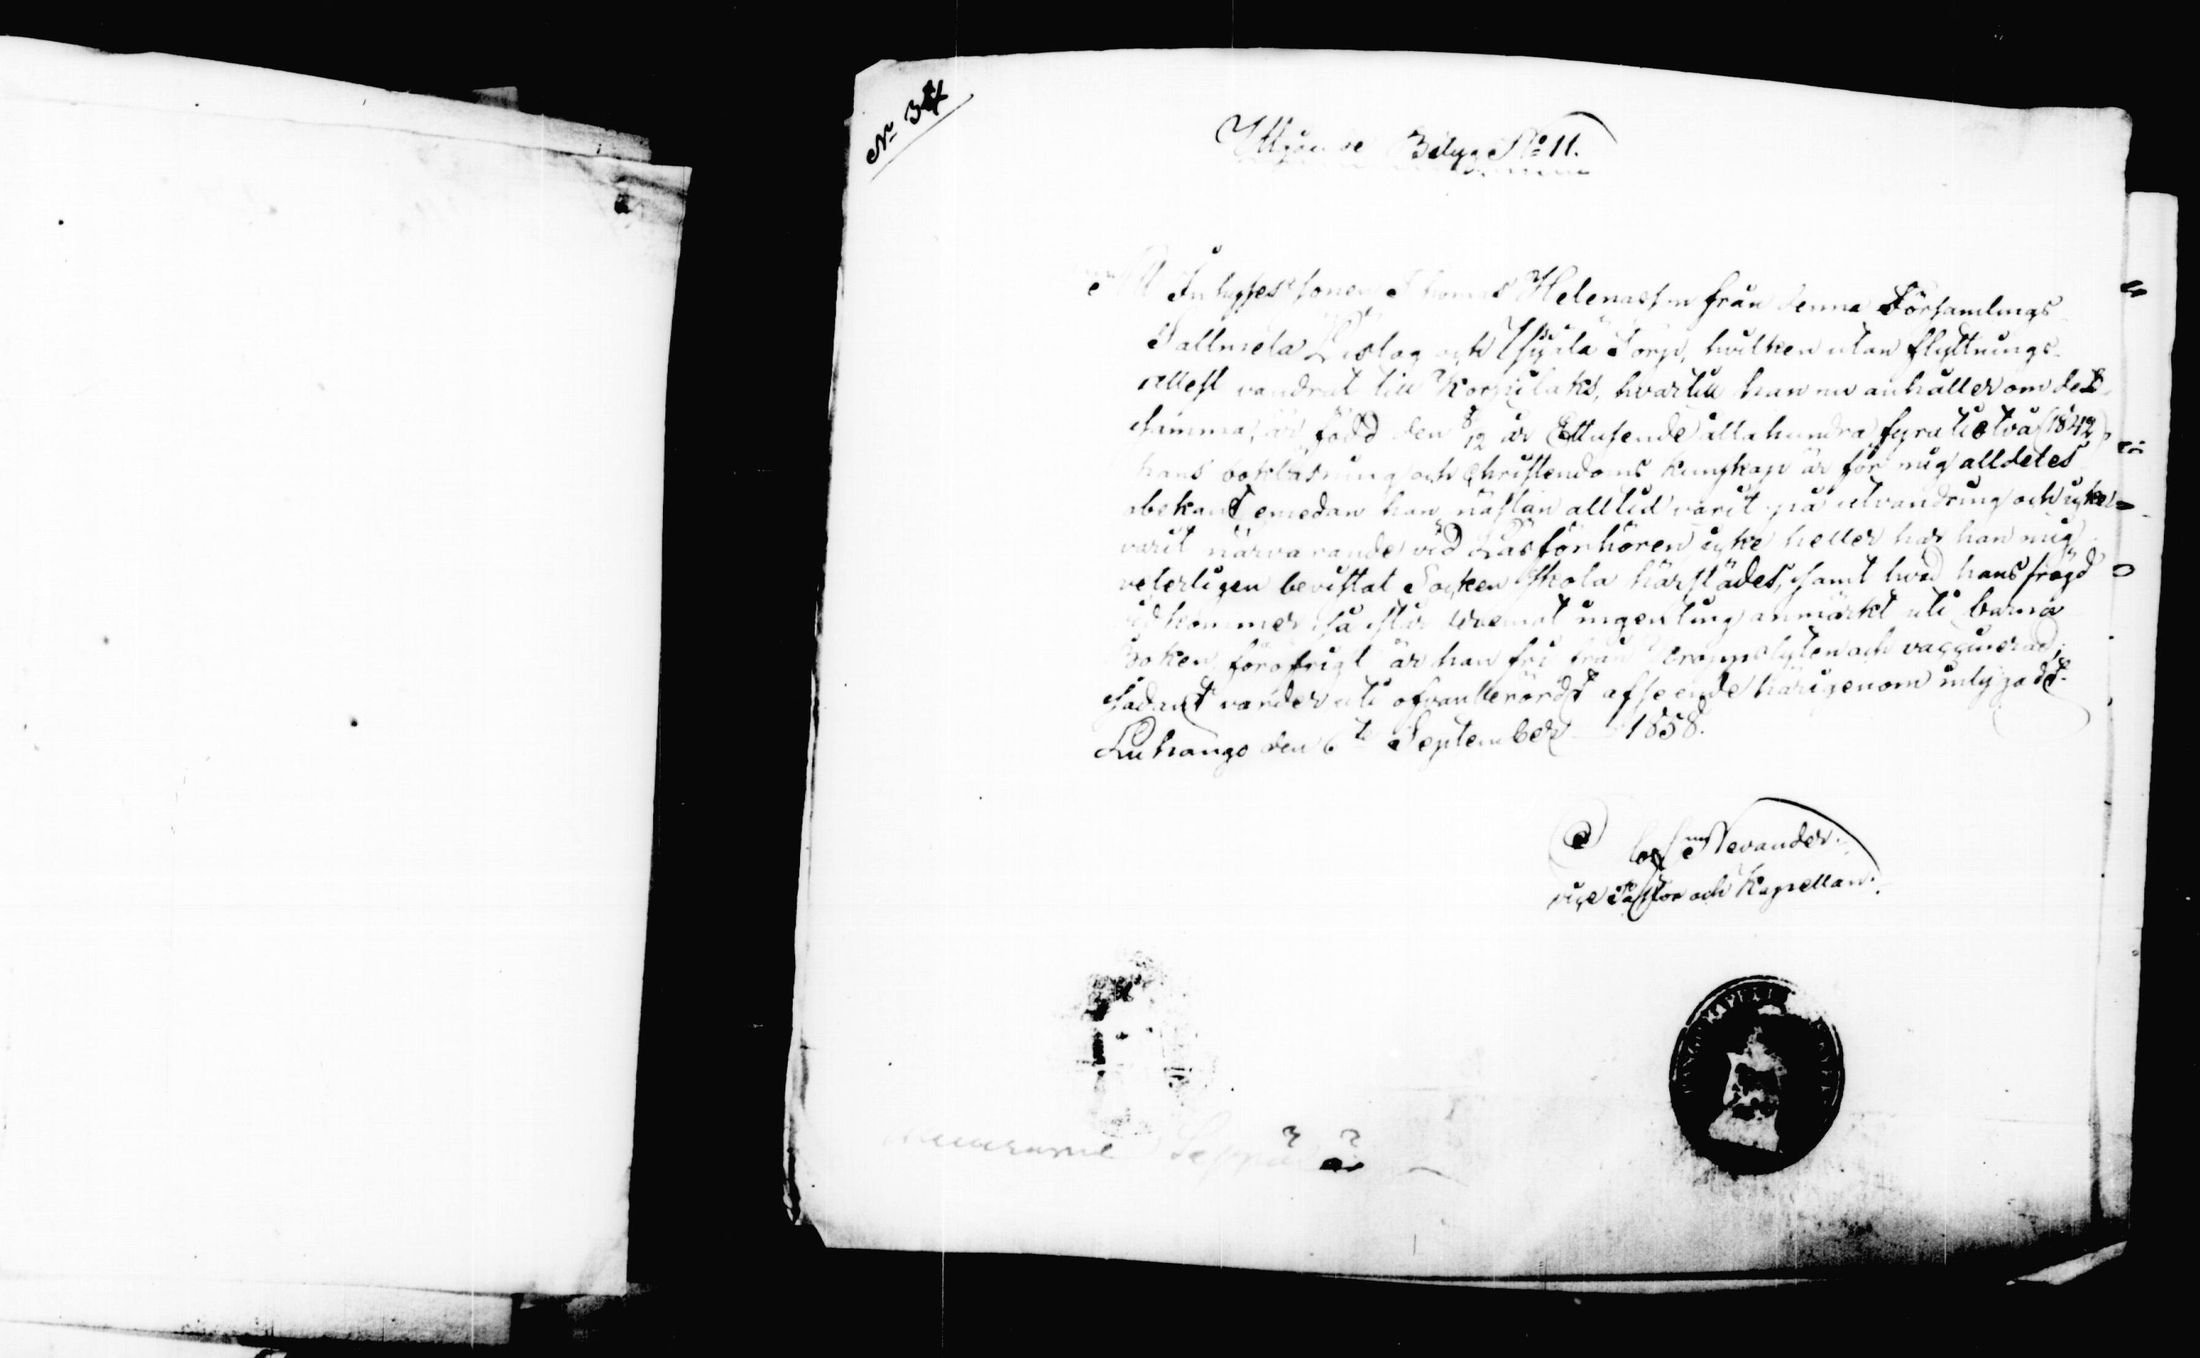 No 34
Utgående Betyg No 11.
Att Inhysessonen Thomas Helenasson från denna Församlings
Tallmela Bolag och Torp, hvilken utan flyttnings-
attest vandrat till Korpilaks, hvartill han nu anhåller om det
samma, är född den 8/12 år Ettusende åttahundra fyratiotvå (1842)
hans bokläsning och Christendoms kunskap är för mig alldeles
obekant emedan han nästan alltid varit på utvandring och icke
varit närvarande vid Läsförhören icke heller har han mig
veterligen bevistat Socken Skola härstädes, samt hvad hans frägd
vidkommer så står deremot ingenting anmärkt uti barna
boken, förofrigt är han fri från kroppslyten och vaccinerad;
sådant varder uti ofvanberördt afseende härigenom intygadt.
Luhango den 6te September 1858.
Nevander.
vice Pastor och Kapellan.